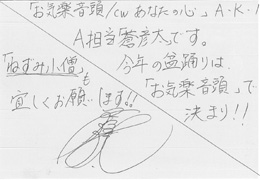 「お気楽音頭/cwあなたの心」A・K・I
A担当蒼彦太です。
今年の盆踊りは、
「お気楽音頭」で
決まり!!
「ねずみ小僧」も
宜しくお願いします!!